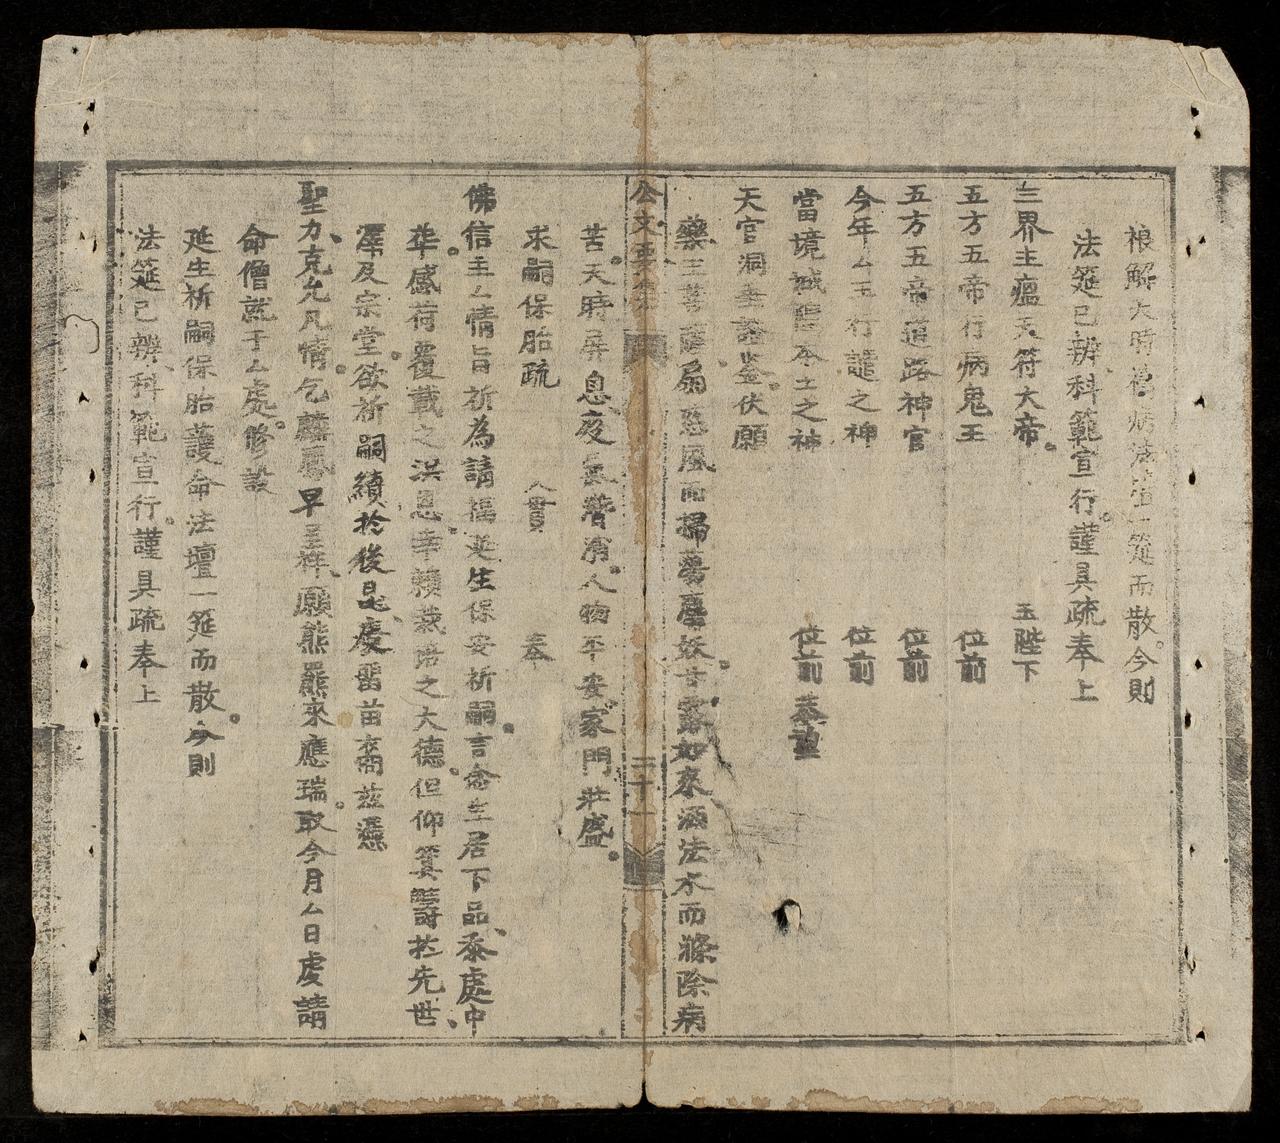 禳解天時禍病法壇一筵而散今則
法筵已辦科範宣行謹具疏奉上
三界主瘟天符大帝 玉陛下
五方五帝行病鬼王 位前
五方五帝道路神官 位前
今年厶王行譴之神 位前
當境城隍本土之神 位前恭望
天官洞垂證鑒伏願
藥王菩薩扇慈風而掃蕩塵妖甘露如來洒法水而滌除病
公文要集 二十一
苦天時屏息疫氣潛消人物平安家門壯盛
求嗣保胎疏 入貫 奉
佛信主厶情旨祈為請福延生保安祈嗣言念生居下品忝處中
華感荷覆載之洪恩幸賴栽培之大德但仰箕疇於先世
澤及宗堂欲祈嗣續於後昆慶留苗裔茲憑
聖力克允凡情乞麟鳳早呈祥願熊羆來應瑞取今月厶日虔請
命僧就于厶處修設
延生祈嗣保胎護命法壇一筵而散今則
法筵已辦科範宣行謹具疏奉上